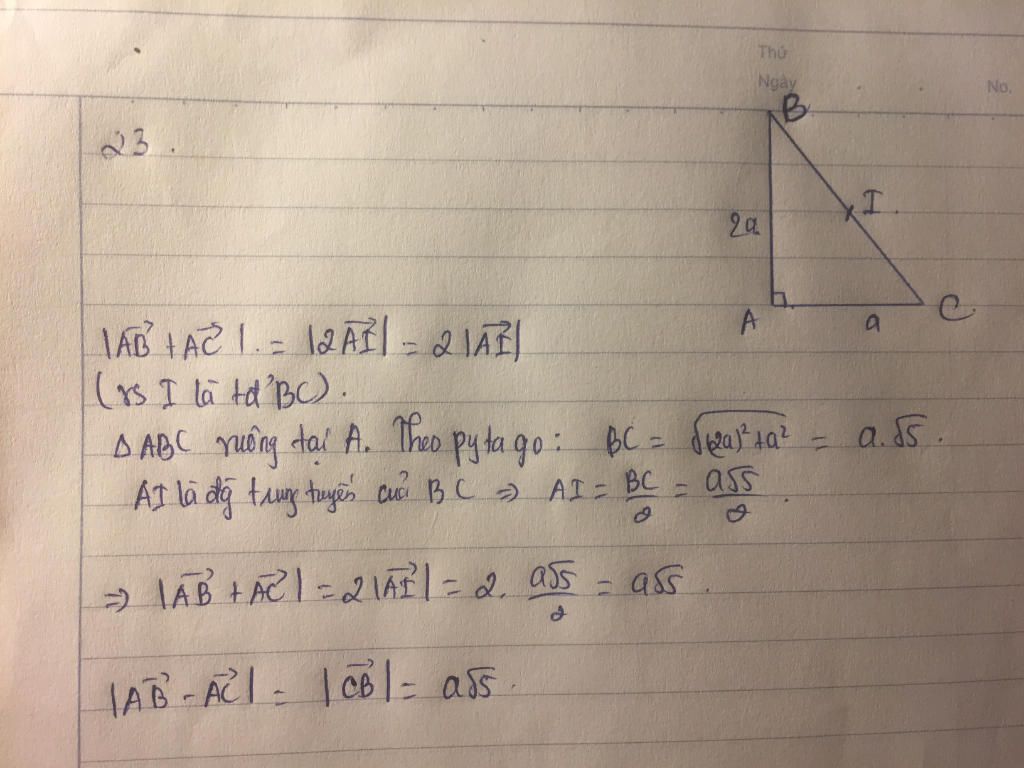 Thứ
Ngày
No.
23.
B
I.
2a
A
a
C
|AB→ + AC→|. = |2AI→| = 2|AI→|
(vs I là tđ' BC).
Δ ABC vuông tại A. Theo pytago: BC = √((2a)² + a²) = a.√5.
AI là đg trung tuyến của BC ⇒ AI = BC/2 = a√5/2.
⇒ |AB→ + AC→| = 2|AI→| = 2. a√5/2 = a√5.
|AB→ - AC→| = |CB→| = a√5.